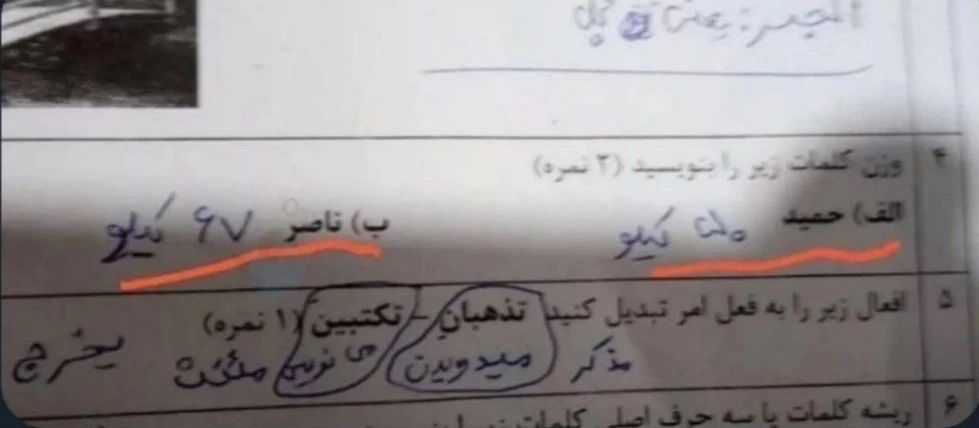 الجسر: یعنی پل
۴ وزن کلمات زیر را بنویسید (۲ نمره)
الف) حمید ۵۰ کیلو ب) ناصر ۶۷ کیلو
۵ افعال زیر را به فعل امر تبدیل کنید تذهبانِ - تکتبین (۱ نمره)
مذکر میدویدن می نویسی مؤنث یخرج
۶ ریشه کلمات یا سه حرف اصلی کلمات زیر را